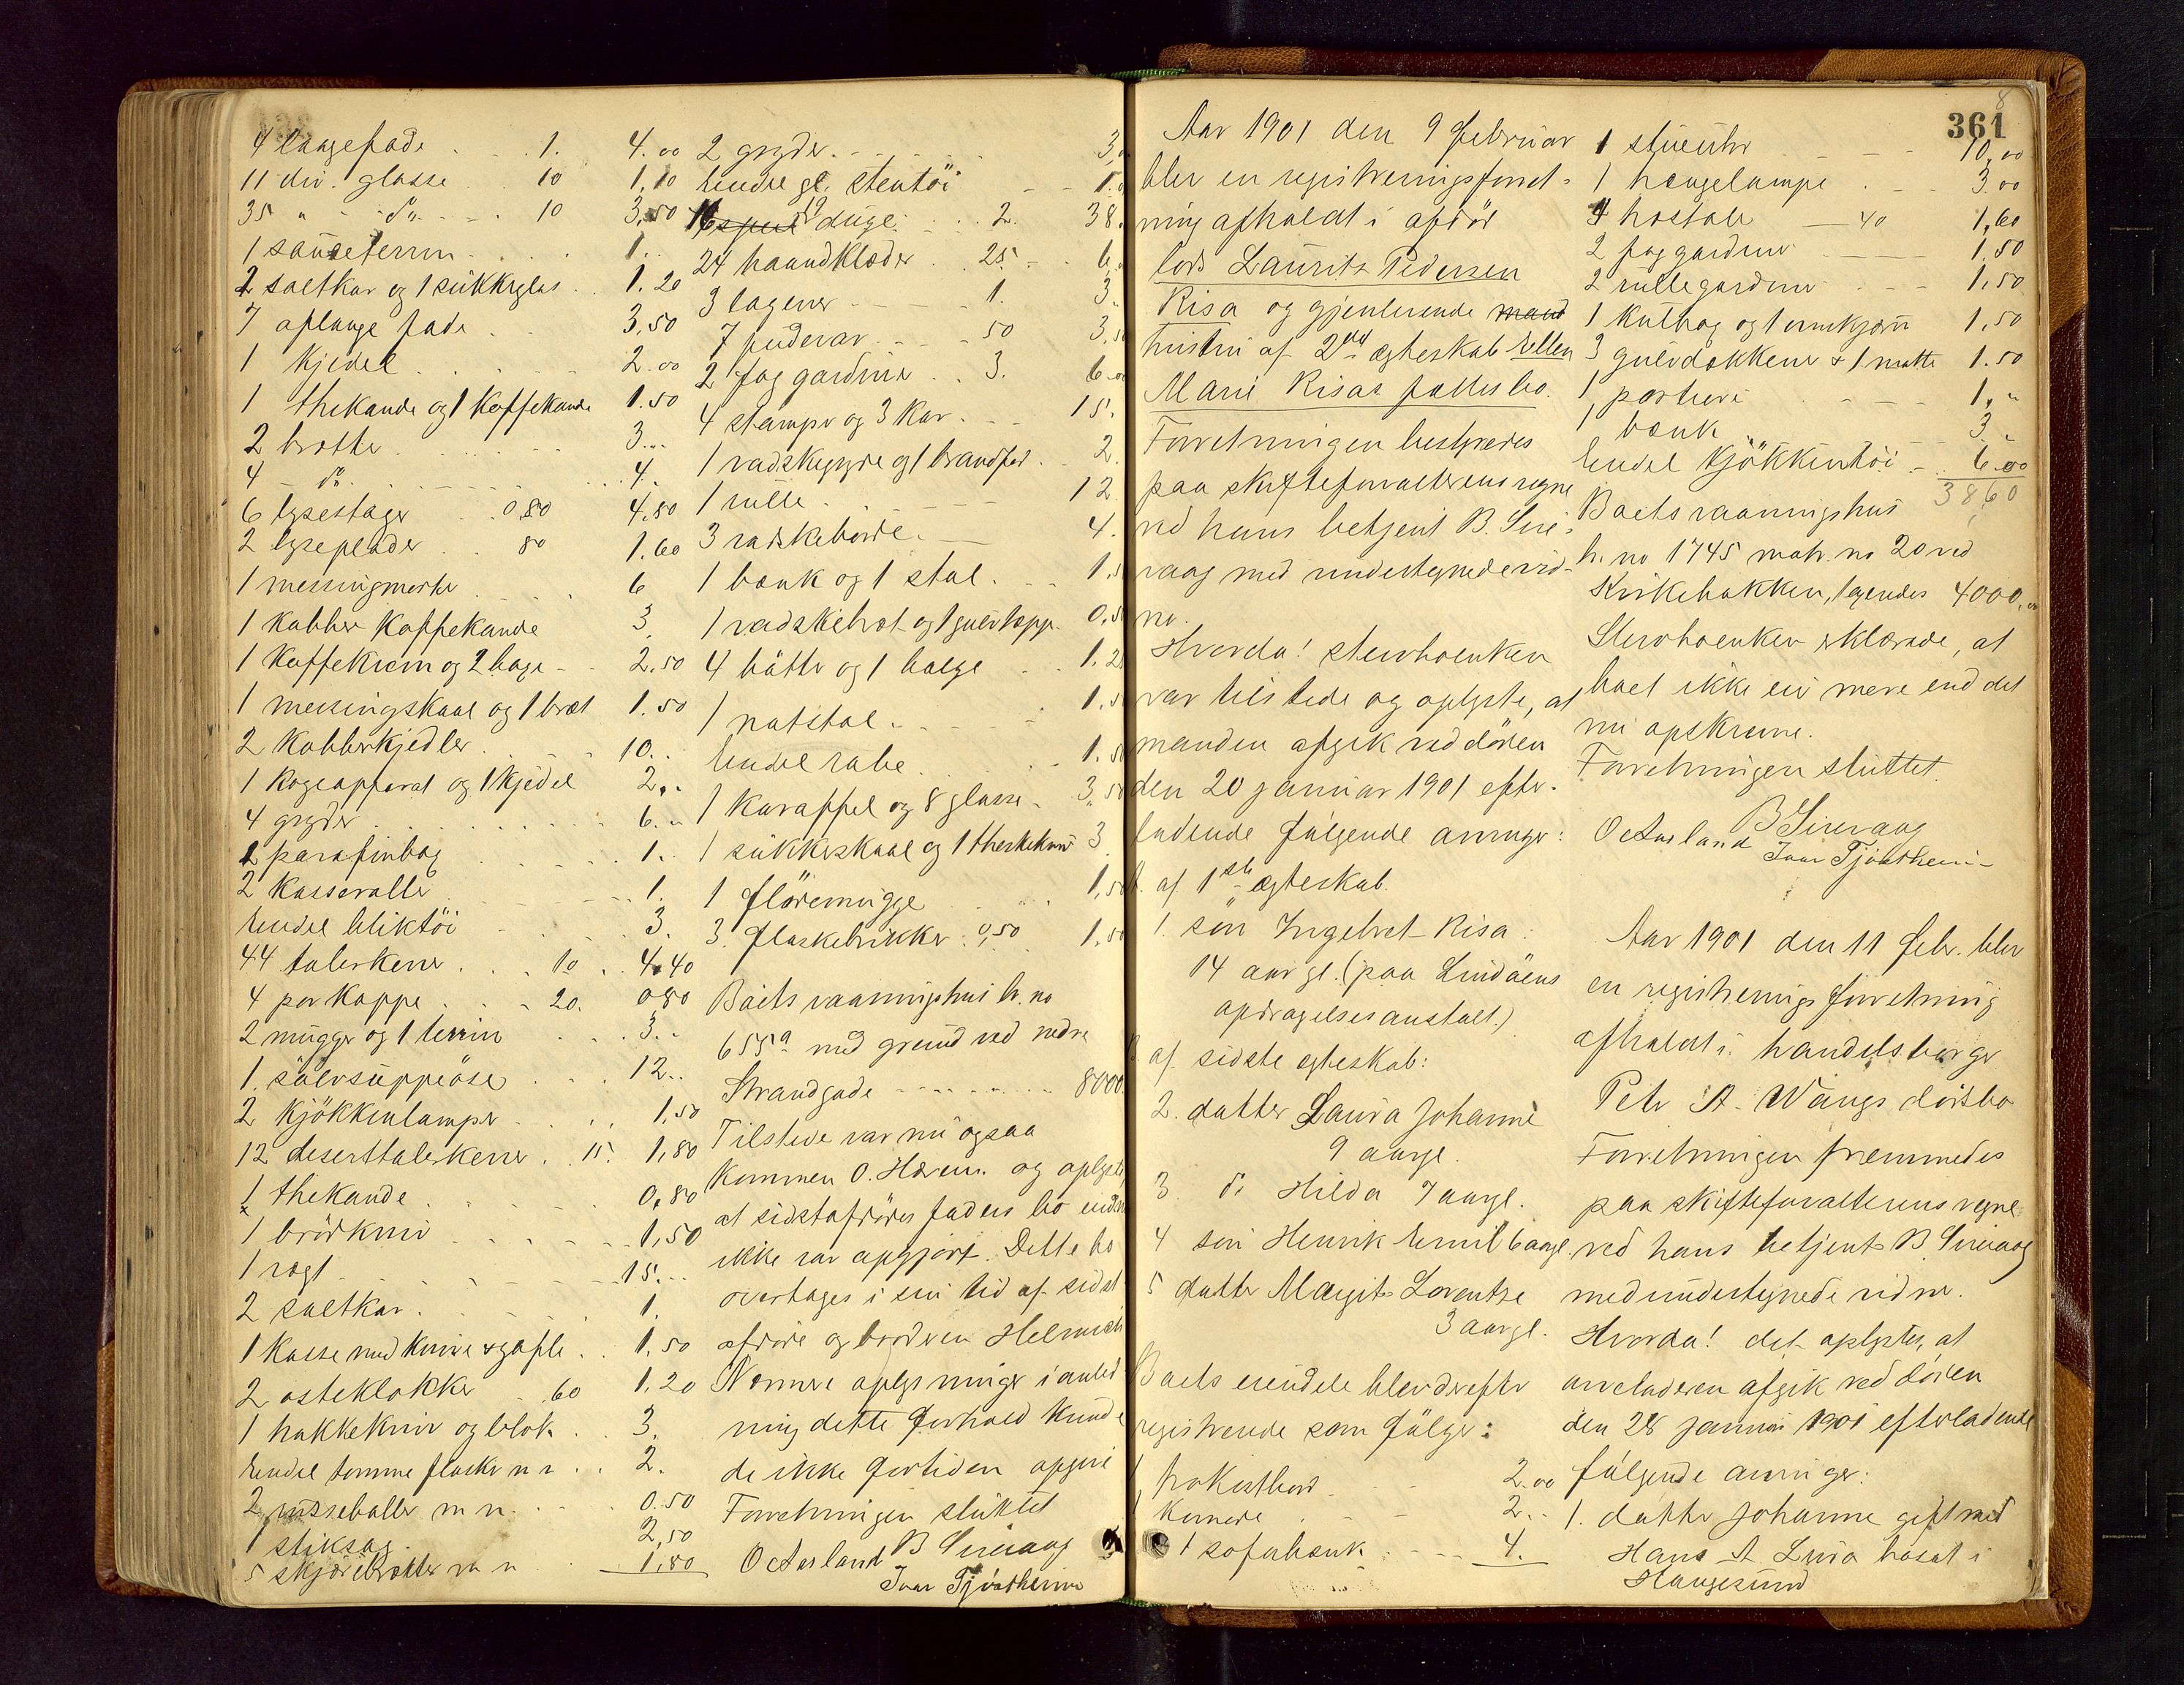 4 langefade . . 1. 4.00
11 div. glasse 10 1,10
35 " - do - - . 10 3,50
1 sauseterrin . . . . 1..
2 saltkar og 1 sukkerglas . . 1.20
7 aflange fade . . 3.50
1 kjedel . . . . . . 2.00
1 thekande og 1 kaffekande 1.50
2 brette . . . . . . 3...
4 - do. . . . . . . 4.
6 lysestager . . 0,80 4,80
2 lyseplader . . 80 1.60
1 messingmorter . . . . 6
1 kobber kaffekande 3.
1 kaffekværn og 2 - - 2.50
1 messingskaal og 1 bræt 1.50
2 kobberkjedler . . . 10..
1 kogeapparat og 1 kjedel 2,.
4 gryder . . . . . . . 6..
1 parafin . . . . . 1..
2 kasseroller . . . . 1.
Endel bliktöi - . . . . 3.
44 talerkener . . . 10 . . 4.40
4 par kopper . . - 20. 0,80
2 mugger og 1 terrin . . . 3.-
1. sölvsuppeöse . . . 12..
2 kjökkenlamper - . . . 1,50
12 deserttalerkener . . 15. 1,80
1 thekande . . . . . 0,80
1 brödkniv . . . . . - 1,50
1 vægt - . - - - - - 15...
2 saltkar . . - . . 1.
1 kasse med knive & gafle . . 1,50
2 osteklokker - 60 1,20
1 hakkekniv og blok . . . 3.
Endel tomme flasker m m . . 2.
2 m m . . . . 0.50
1 stiksag . . . . 2,50
5 m m . . 1,80
2 gryder . - - - . . 3,
Endel gl. stentöi - - 1.
19 duge . . . . 2. 38.
24 haandklæder . 25 - . 6,
3 lagener - - 1. 3.
7 pudevar . - - - 50 3,5
2 fag gardiner . . 3. 6.0
4 stamper og 3 kar . - - 15.
1 og 1 . . 2.
1 rulle . . - - 12
3 . - 4.
1 bænk og 1 stol . . - . 1.5
1 og 1 0,5
4 bötter og 1 balge - . 1.2
1 natstol . - - - - : 1.5
Endel sæbe . . . . . 1.5
1 karaffel og 8 glasse . 3,50
1 sukkerskaal og 1 3
1 flödemugge . . . 1,5
3. flaskebrikker . 0,50 1,50
Boets vaaningshus br. no
655a med grund ved nedre
Strandgade - - - - . . . . . 8000.
Tilstede var nu ogsaa
kommen O. og oplyste,
at sidstafdödes faders bo endnu
ikke var opgjort. Dette bo
overtages i sin tid af sidst
afdöde og broderen Helmich
Nærmere oplysninger i anled
ning dette forhold kunde
de ikke fortiden opgive
Forretningen sluttet
B Sirevaag
O Aarsland Ivar Tjöstheim
361
8
Aar 1901 den 9 februar
blev en registreringsforret-
ning afholdt i afdöd
lods Laurits Pedersen
Risa og gjenlevende mand
hustru af 2det ægteskab Ellen
Marie Risas fællesbo.
Forretningen bestyredes
paa skifteforvalterens vegne
ved hans betjent B. Sire-
vaag med undertegnede vid-
ner.
Hvorda! sterboenken
var tilstede og oplyste, at
manden afgik ved döden
den 20 januar 1901 efter-
ladende fölgende arvinger:
A. af 1ste ægteskab.
1. sön Ingebret Risa:
14 aar gl. (paa Lindöens
opdragelsesanstalt.)
B. af sidste egteskab:
2. datter Laura Johanne
9 aargl.
3. do Hilda 7 aargl.
4 sön Henrik Emil 6 aargl.
5 datter Margit Lorentze
3 aargl.
Boets eiendele blev derefter
registrerede som fölger:
1 frokostbord . - - 2.00
1 komode . . - - 2..
1 sofabænk . . - - 4.
1 stueuhr - - - 10,00
1 hængelampe . - - 3.00
4 hostole - 40 1,60
2 fag gardiner - - - - 1.50
2 rullegardiner . . - - 1,50
1 og 1 1,50
3 gulvdækkener & 1 matte 1.50
1 portiere - - - - 1,"
1 bænk . . - - 3..
Endel kjökkentöi - . . 6.00
38,60
Boets vaaningshus
br. no 1745 matr. no 20 ved
Kirkebakken, tagendes 4000,00
Sterboenken erklærede, at
boet ikke eier mere end det
nu opskrevne.
Forretningen sluttet.
B Sirevaag
O Aarsland Ivar Tjöstheim
Aar 1901 den 11 febr. blev
en registreringsforretning
afholdt i handelsborger
Peter A. Wangs dödsbo
Forretningen fremmedes
paa skifteforvalterens vegne
ved hans betjent B Sirevaag
med undertegnede vidner.
Hvorda! det oplystes, at
arveladeren afgik ved döden
den 28 januar 1901 efterladende
fölgende arvinger:
1. datter Johanne gift med
Hans A Lura bosat i
Haugesund